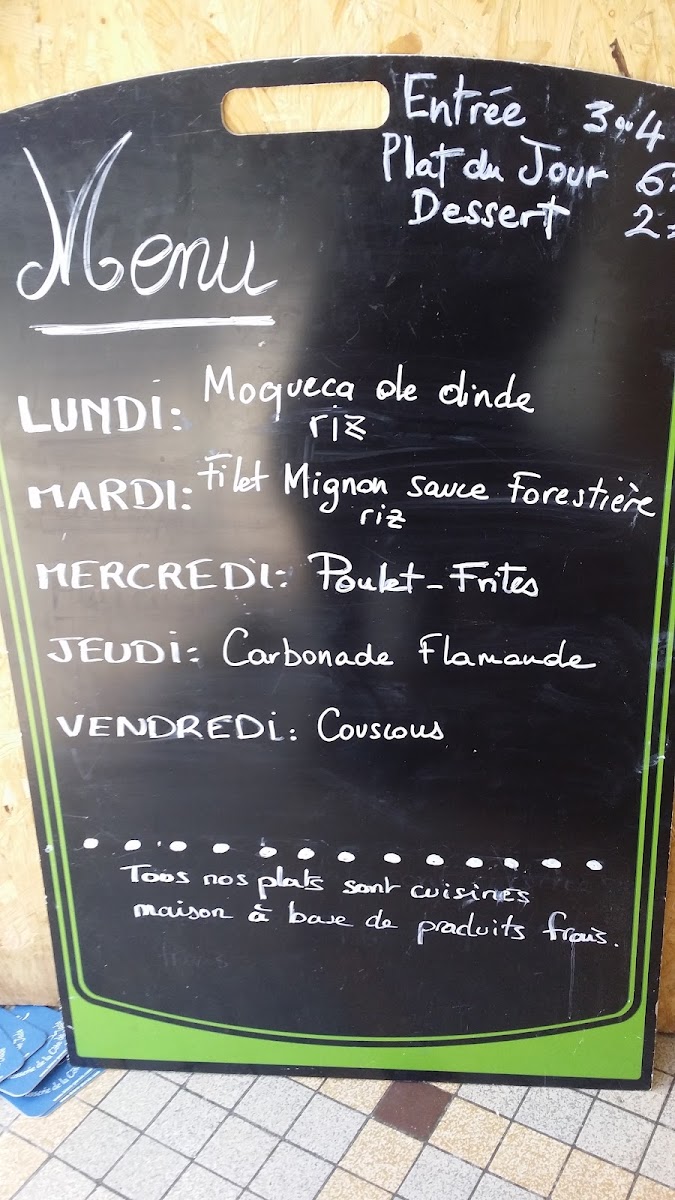 Entrée 3"4
Plat du Jour 6
Dessert 2
Menu
LUNDI: Moqueca de dinde
riz
MARDI: Filet Mignon sauce Forestière
riz
MERCREDI: Poulet-Frites
JEUDI: Carbonade Flamande
VENDREDI: Couscous
Tous nos plats sont cuisinés
maison à base de produits frais.